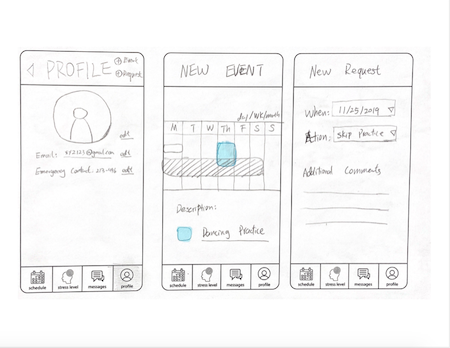 PROFILE
Request
edit
Email: edit
Emergency Contact: edit
schedule stress level messages profile
NEW EVENT
day/wk/month
M T W Th F S S
Description:
Dancing Practice
schedule stress level messages profile
New Request
When: 11/25/2019
Action: Skip Practice
Additional Comments
schedule stress level messages profile